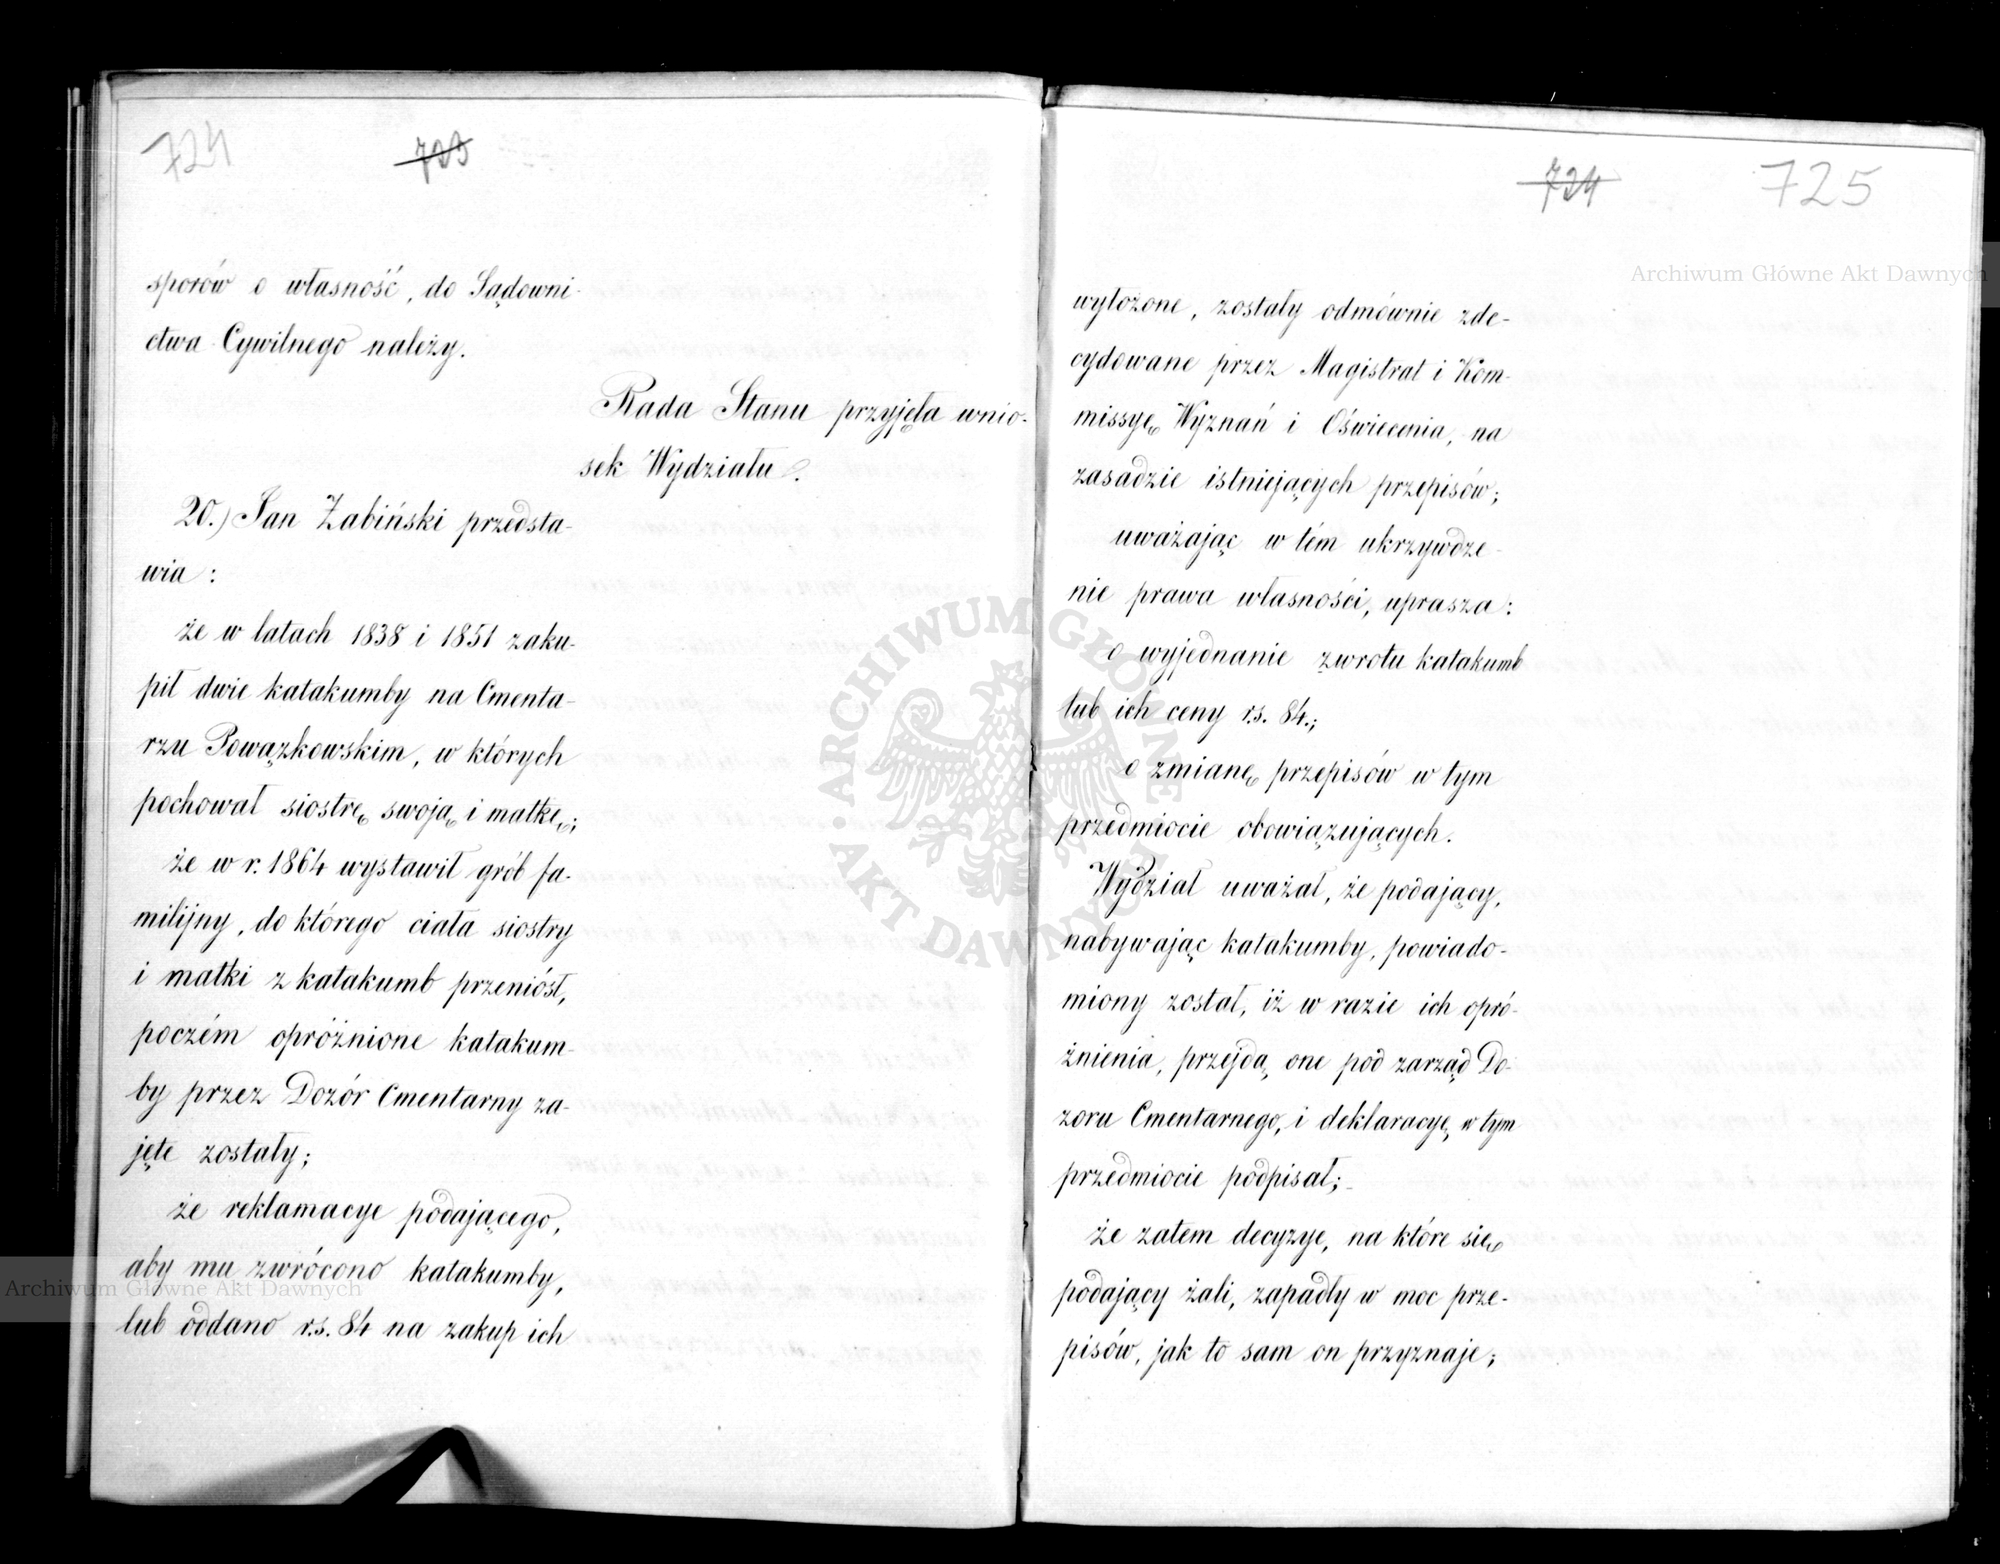 724
723
sporów o własność, do Sądowni-
ctwa Cywilnego należy.
Rada Stanu przyjęła wnio-
sek Wydziału.
20.) Jan Żabiński przedsta-
wia:
że w latach 1838 i 1851 zaku-
pił dwie katakumby na Cmenta-
rzu Powązkowskim, w których
pochował siostrę swoją i matkę;
że w r. 1864 wystawił grób fa-
milijny, do którego ciała siostry
i matki z katakumb przeniósł,
poczém opróżnione katakum-
by przez Dozór Cmentarny za-
jęte zostały;
że reklamacye podającego,
aby mu zwrócono katakumby,
lub oddano r.s. 84 na zakup ich
724
725
wyłożone, zostały odmównie zde-
cydowane przez Magistrat i Kom-
missyę Wyznań i Oświecenia, na
zasadzie istniejących przepisów;
uważając w tém ukrzywdze-
nie prawa własności, uprasza:
o wyjednanie zwrotu katakumb
lub ich ceny r.s. 84.;
o zmianę przepisów w tym
przedmiocie obowiązujących.
Wydział uważał, że podający,
nabywając katakumby, powiado-
miony został, iż w razie ich opró-
żnienia, przejdą one pod zarząd Do-
zoru Cmentarnego, i deklaracyę w tym
przedmiocie podpisał;
że zatem decyzye, na które się
podający żali, zapadły w moc prze-
pisów, jak to sam on przyznaje;
ARCHIWUM GŁÓWNE
AKT DAWNYCH
Archiwum Główne Akt Dawnych
Archiwum Główne Akt Dawnych